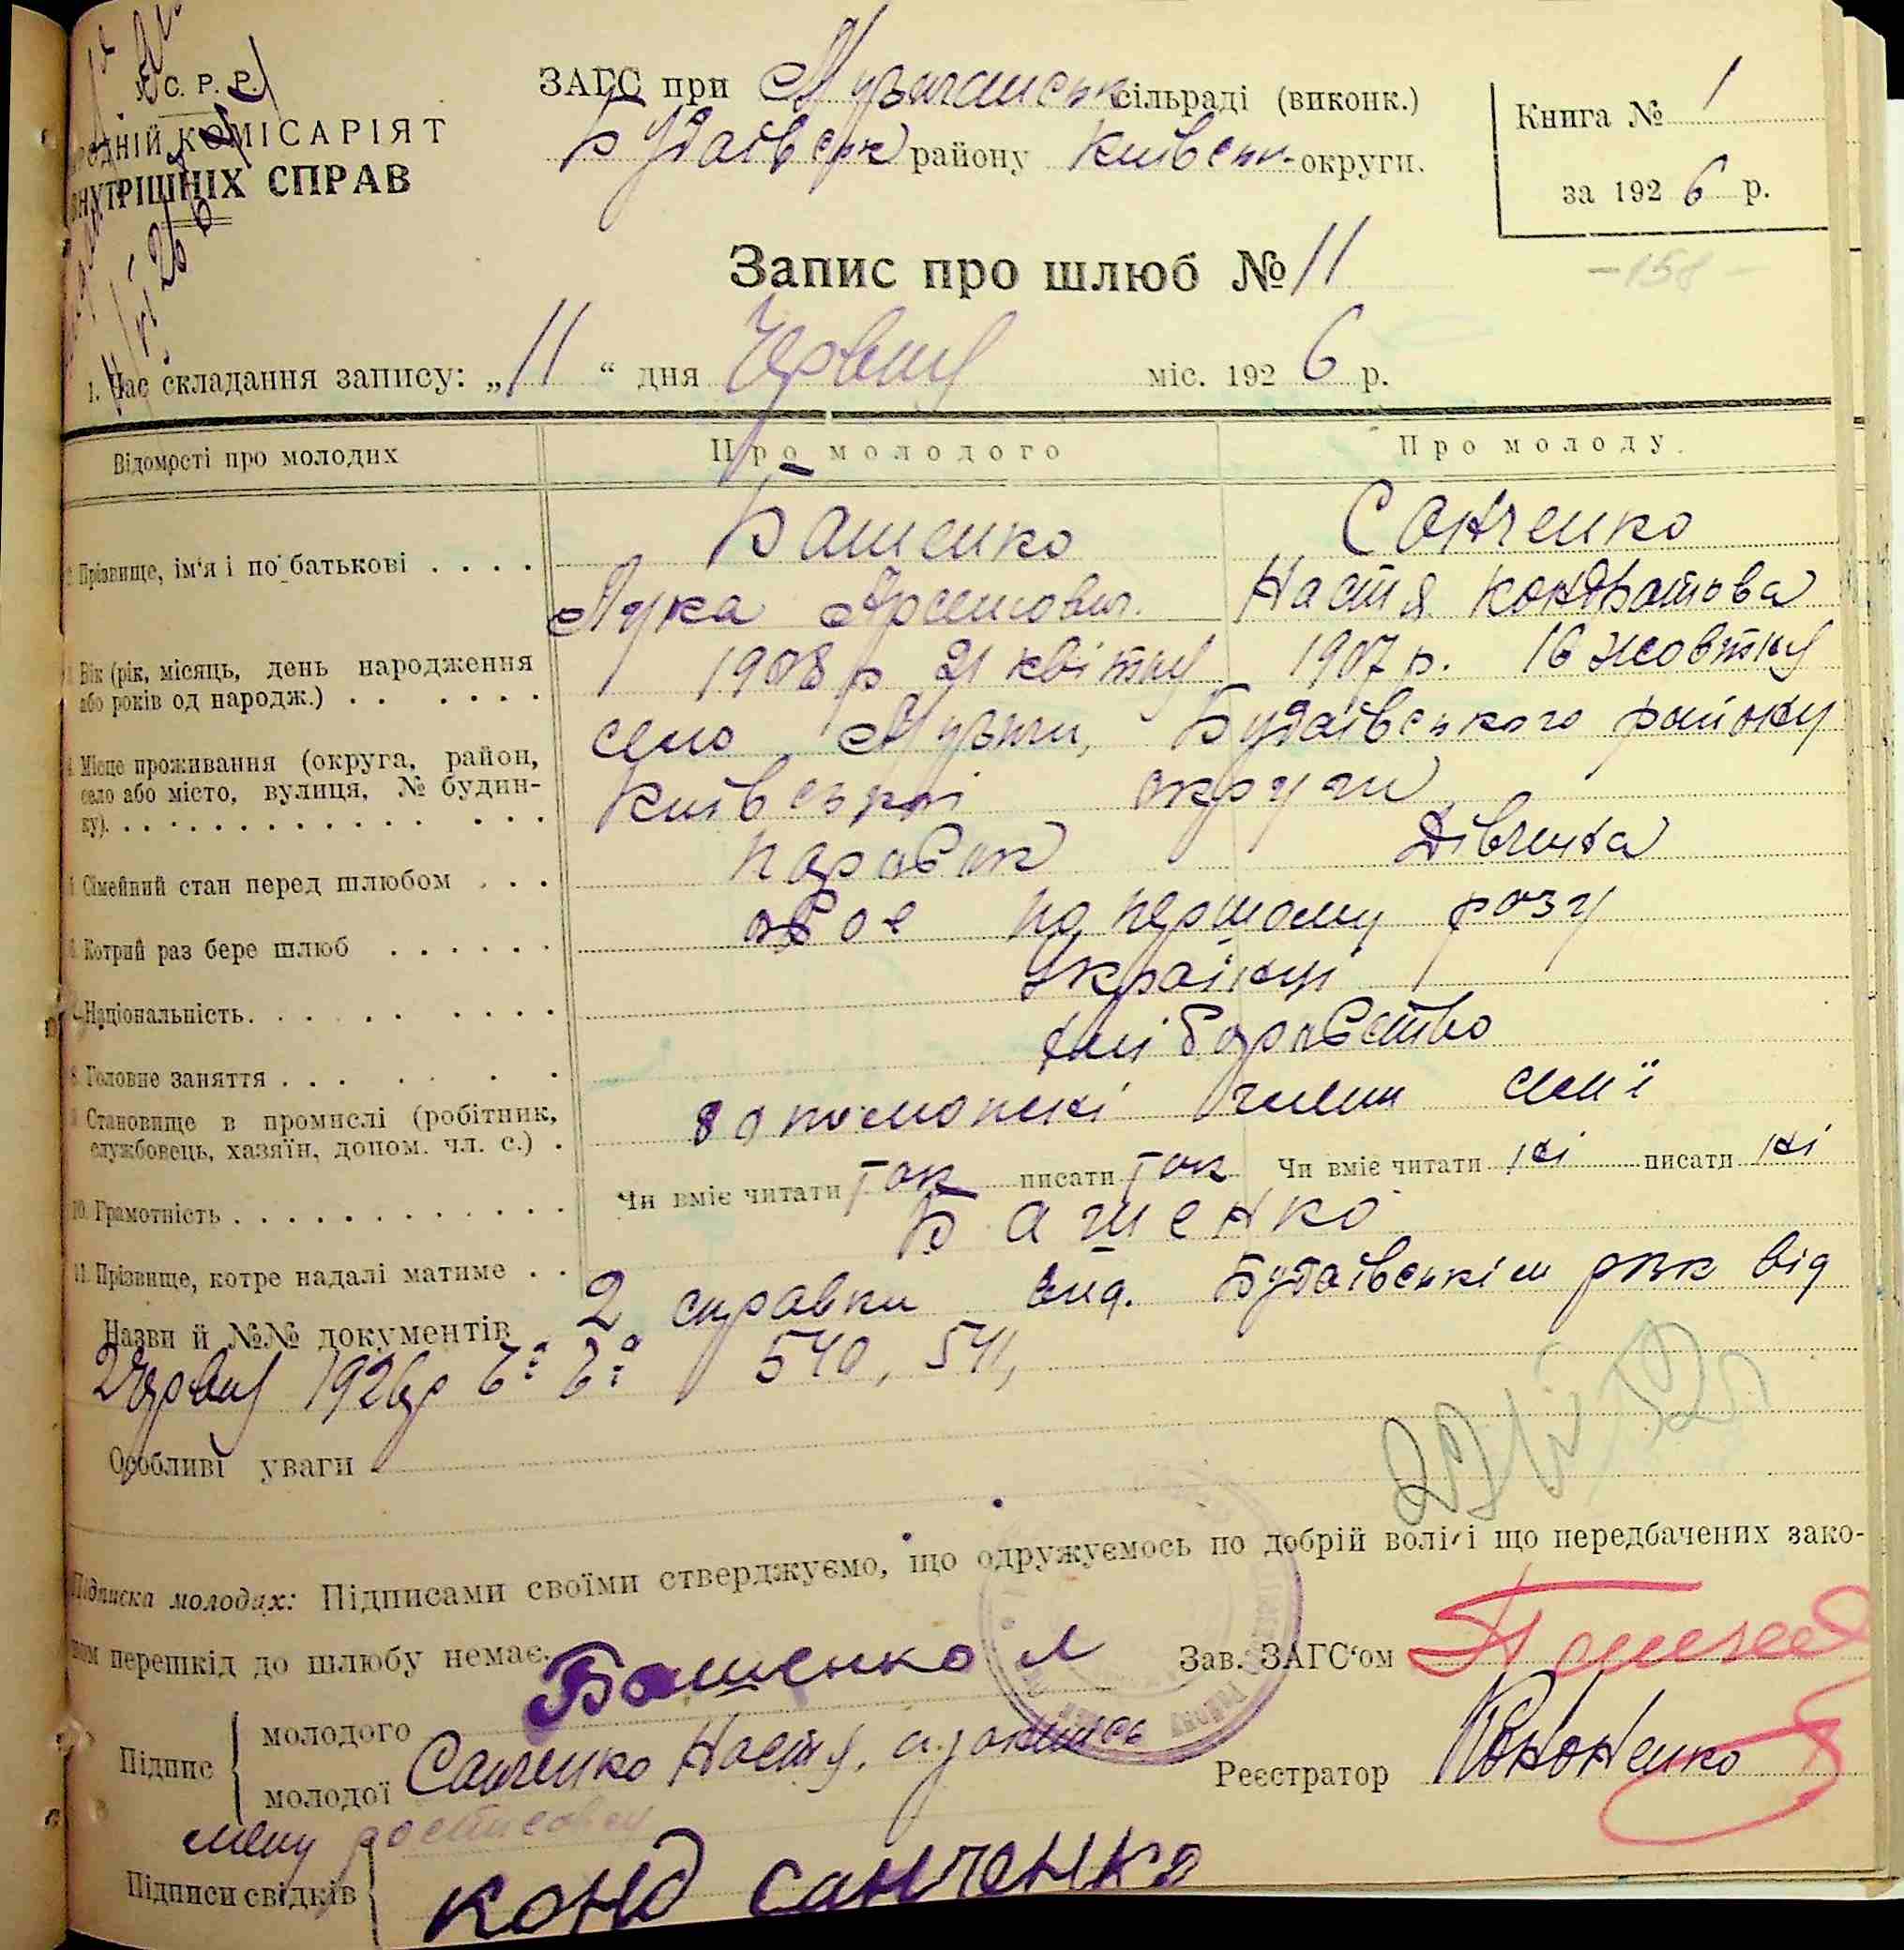 С. Р. Р.
НАРОДНІЙ КОМІСАРІЯТ
ВНУТРІШНІХ СПРАВ
ЗАГС при Музичанськ сільраді (виконк.)
Будаївськ району Київськ. округи.
Книга № 1
за 1926 р.
Запис про шлюб № 11
158
1. Час складання запису: „11“ дня Червня міс. 1926 р.
Відомості про молодих Про молодого Про молоду.
2. Прізвище, ім'я і по батькові . . . . Башенко Санченко
Лука Арсенович. Настя Кондратова
3. Вік (рік, місяць, день народження або років од народж.) . . . . . . 1908 р 21 квітня 1907 р. 16 жовтня
4. Місце проживання (округа, район, село або місто, вулиця, № будинку). село Музичи, Будаївського району
Київської округи
5. Сімейний стан перед шлюбом . . . паровок Дівчина
6. Котрий раз бере шлюб . . . . . . двоє по першому разу
7. Національність. . . . . . . . . Українці
8. Головне заняття . . . . . . хліборобство
9. Становище в промислі (робітник, службовець, хазяїн, допом. чл. с.) . допомопні члени сем'ї
10. Грамотність . . . . . . . . . . . . Чи вміє читати так писати так Чи вміє читати ні писати ні
11. Прізвище, котре надалі матиме . . Башенко
Назви й №№ документів 2 справки вид. Будаївскім рвк від
2 Червня 1926 р 540, 541,
Особливі уваги
Підписка молодих: Підписами своїми стверджуємо, що одружуємось по добрій волі і що передбачених зако-
ном перешкід до шлюбу немає.
Зав. ЗАГС'ом
Підпис
молодого Башенко Л
молодої Санченко Настя, а за неї
Реєстратор Кононенко
Підписи свідків Конд Санченко